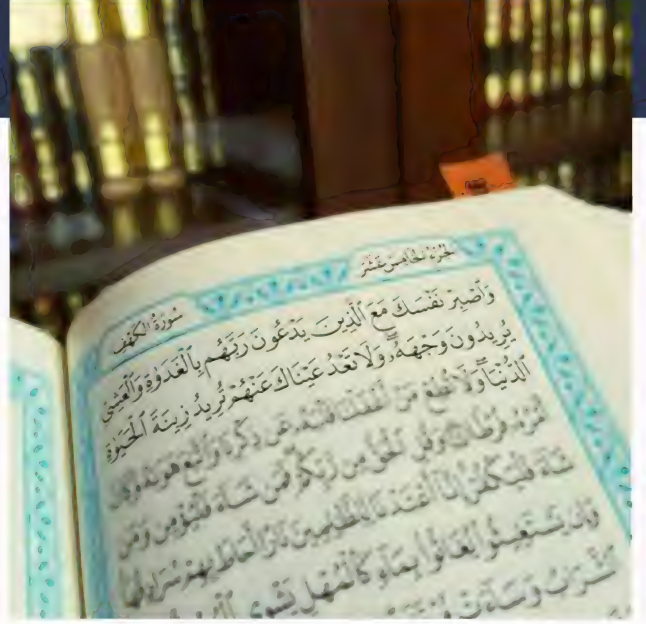 الجُزْءُ الخَامِسَ عَشَرَ
سُورَةُ الكَهْفِ
وَٱصْبِرْ نَفْسَكَ مَعَ ٱلَّذِينَ يَدْعُونَ رَبَّهُم بِٱلْغَدَوٰةِ وَٱلْعَشِىِّ
يُرِيدُونَ وَجْهَهُۥۖ وَلَا تَعْدُ عَيْنَاكَ عَنْهُمْ تُرِيدُ زِينَةَ ٱلْحَيَوٰةِ
ٱلدُّنْيَاۖ وَلَا تُطِعْ مَنْ أَغْفَلْنَا قَلْبَهُۥ عَن ذِكْرِنَا وَٱتَّبَعَ هَوَىٰهُ وَكَانَ
أَمْرُهُۥ فُرُطًا وَقُلِ ٱلْحَقُّ مِن رَّبِّكُمْۖ فَمَن شَآءَ فَلْيُؤْمِن وَمَن
شَآءَ فَلْيَكْفُرْۚ إِنَّآ أَعْتَدْنَا لِلظَّـٰلِمِينَ نَارًا أَحَاطَ بِهِمْ سُرَادِقُهَاۚ
وَإِن يَسْتَغِيثُوا۟ يُغَاثُوا۟ بِمَآءٍ كَٱلْمُهْلِ يَشْوِى